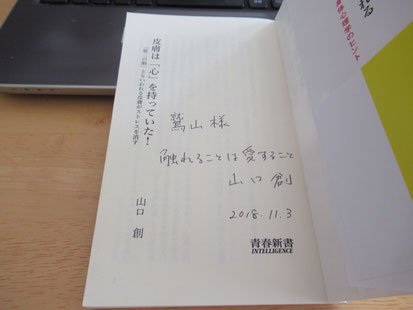 皮膚は「心」を持っていた!
「第二の脳」ともいわれる皮膚がストレスを消す
山口 創
鷲山様
触れることは愛すること
山口 創
2018.11.3
青春新書
INTELLIGENCE
れる
心理学のヒント